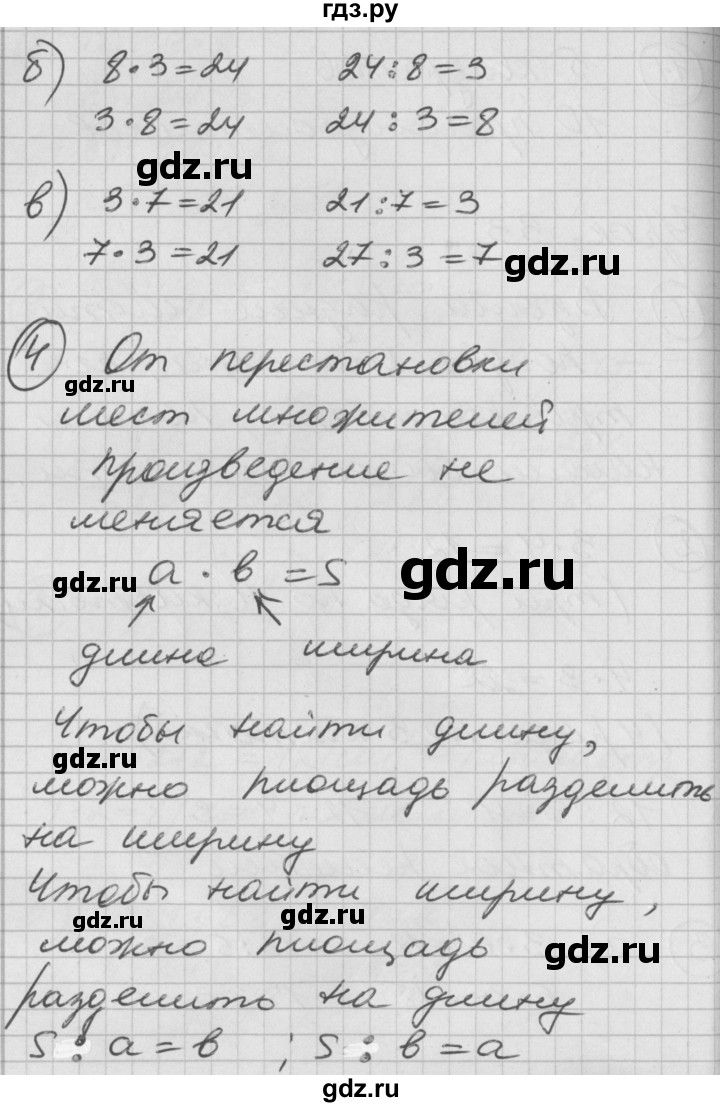 гдз.ру
б) 8·3=24 24:8=3
3·8=24 24:3=8
gdz.ru
в) 3·7=21 21:7=3
7·3=21 27:3=7
gdz.ru
4 От перестановки
gdz.ru
мест множителей
произведение не
меняется
gdz.ru
a · b = S
gdz.ru
длина ширина
Чтобы найти длину,
gdz.ru
можно площадь разделить
на ширину
Чтобы найти ширину,
gdz.ru gdz.ru
можно площадь
gdz.ru
разделить на длину
S : a = b ; S : b = a
gdz.ru